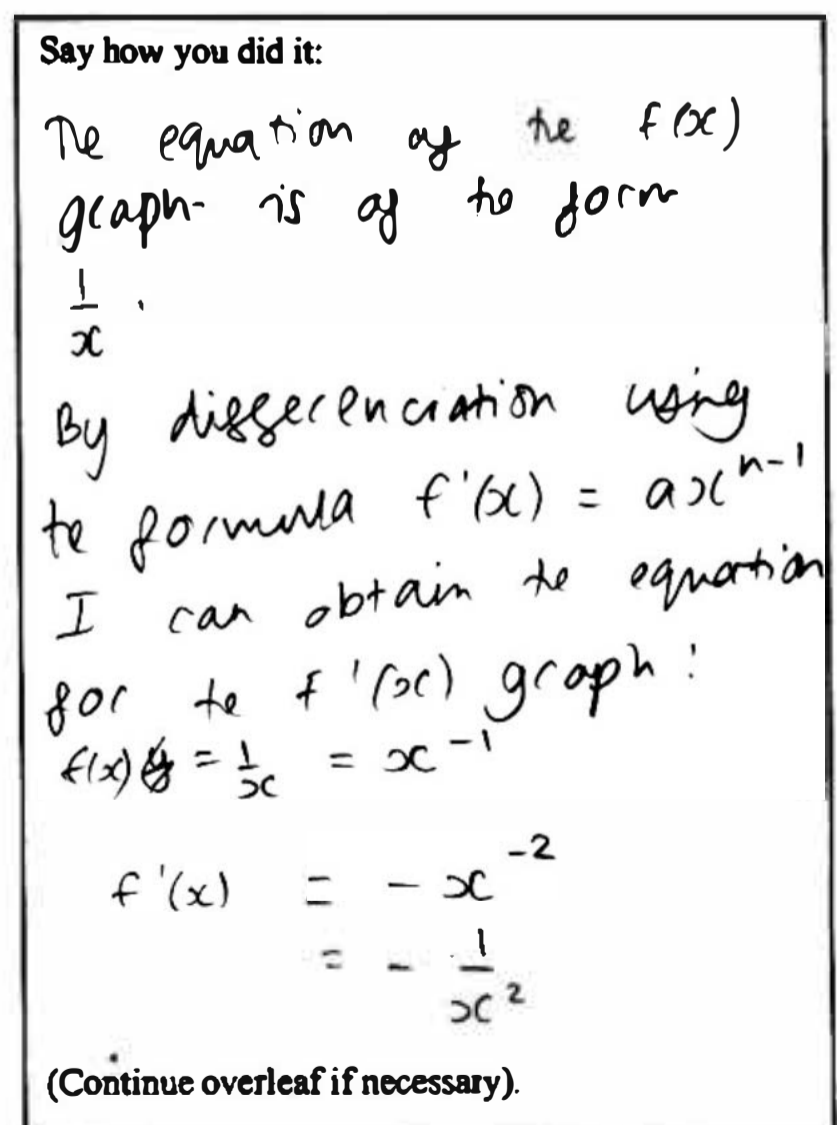 Say how you did it:
The equation of the f(x)
graph is of the form
1/x.
By differenciation using
the formula f'(x) = ax^(n-1)
I can obtain the equation
for the f'(x) graph:
f(x) = 1/x = x^(-1)
f'(x) = - x^(-2)
= - 1/x^2
(Continue overleaf if necessary).